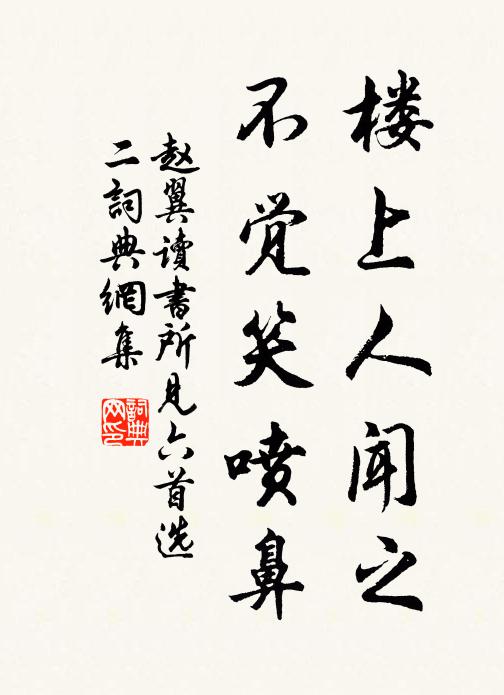 楼上人闻之
不觉笑喷鼻
赵翼读书所见六首选
二词典网集
詞典
网印